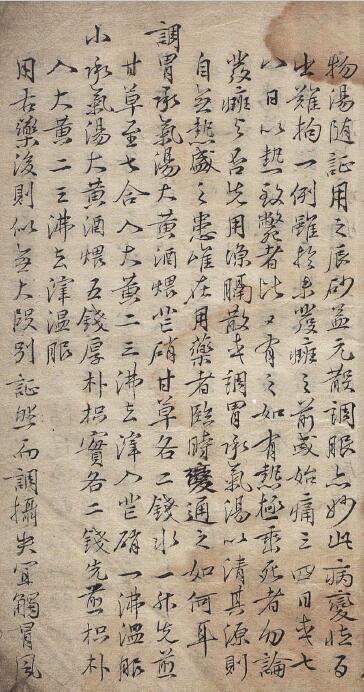 物湯随証用之辰砂益元散調服亦妙此病變恠百
出難拘一例雖於未發癍之前或始痛三四日或七
八日以熱致斃者比比有之如有熱極垂死者勿論
發癍与否先用凉膈散或調胃承氣湯以清其源則
自無熱盛之患唯在用藥者臨時變通之如何耳
調胃承氣湯大黃酒煨芒硝甘草各二錢水一升先煎
甘草至七合入大黃二三沸去滓入芒硝一沸溫服
小承氣湯大黃酒煨五錢厚朴枳實各二錢先煎枳朴
入大黃二三沸去滓溫服
用右藥後則似無大段別証然而調攝失宜觸冒風